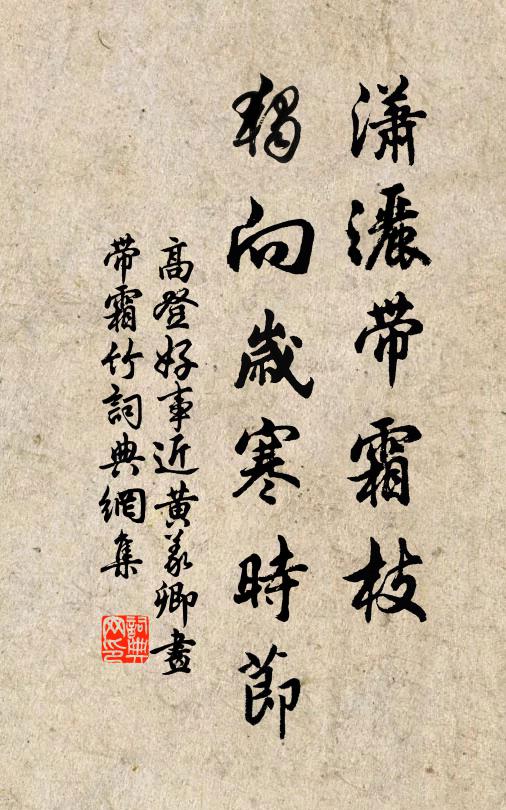 瀟灑带霜枝
獨向歲寒時節
高登好事近黄義卿畫
带霜竹詞典網集
詞典网印